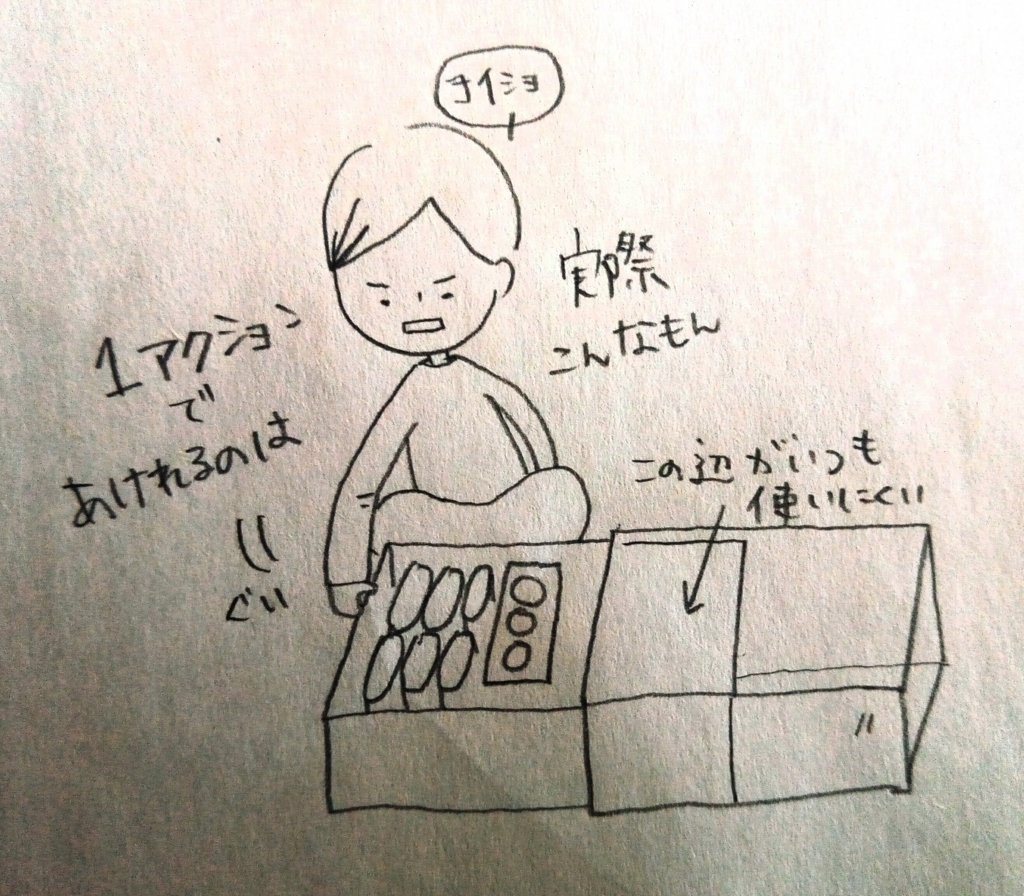 1アクション
で
あけれるのは
ぐい
実際
こんなもん
この辺がいつも
使いにくい